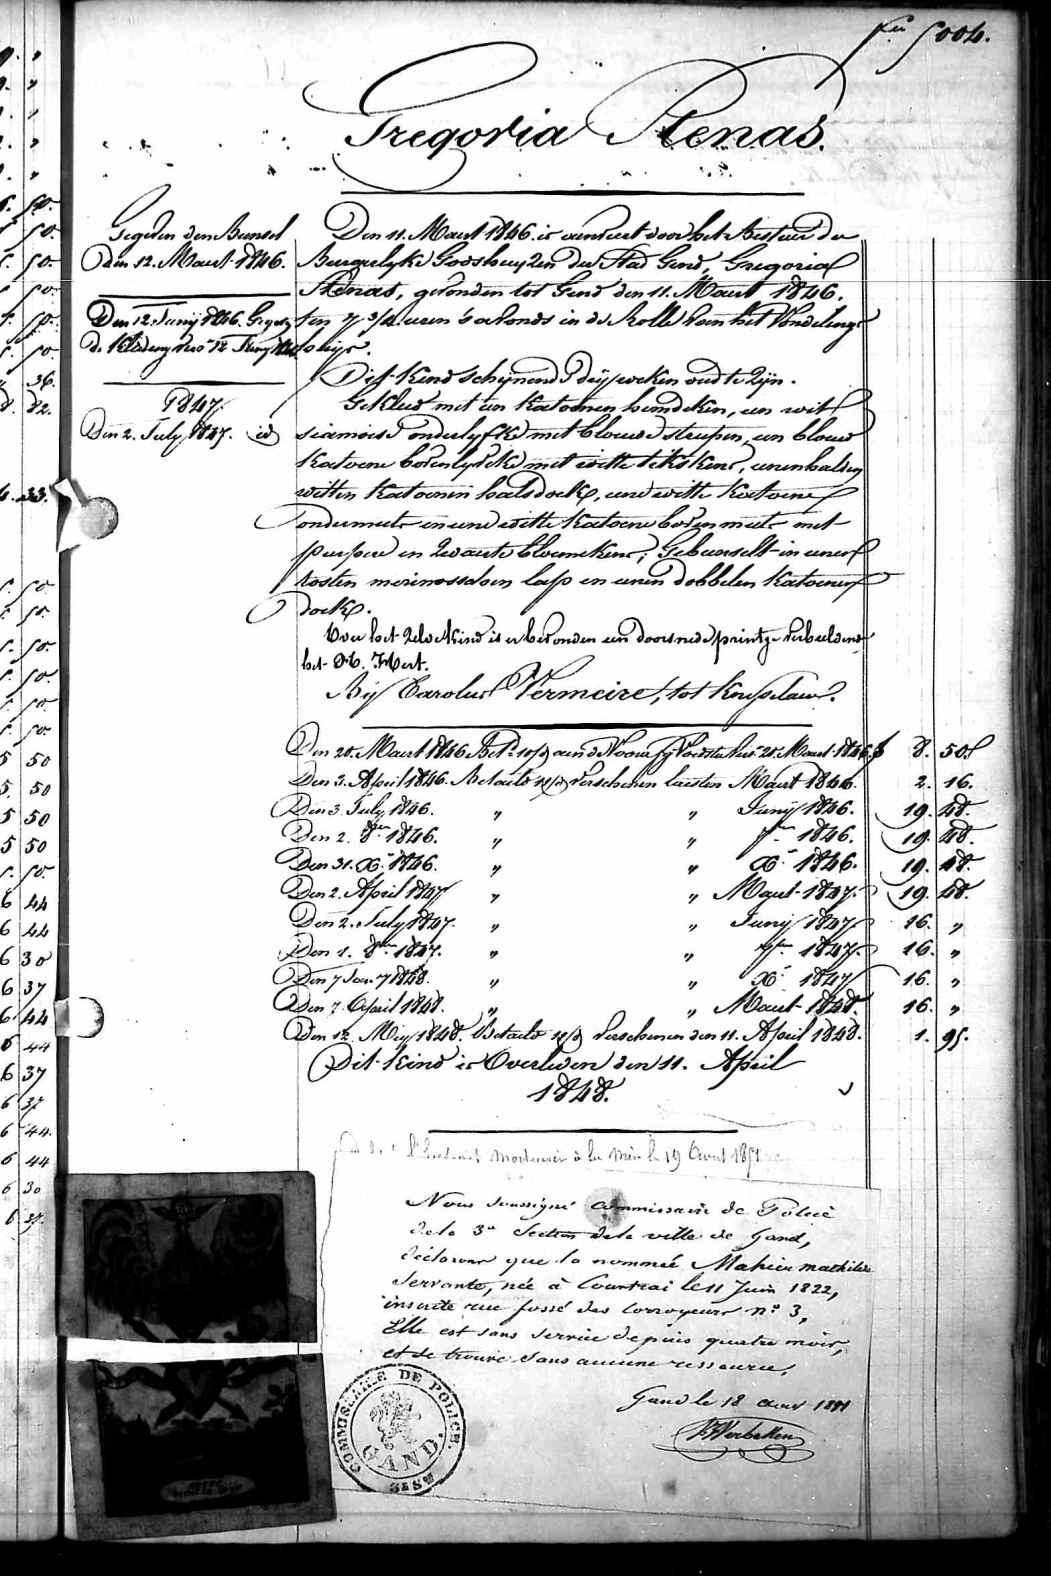 fº 5004.
Gregoria Stenas.
Gegeven den Bunsel
Den 12. Maart 1846.
Den 12 Junij 1846. Gegev.
de Kleding
1847
Den 2. July 1847. id
Den 11. Maart 1846. is aenveert door het Bestuer der
Burgerlyke Godshuyzen der Stad Gend, Gregoria
Stenas, gevonden tot Gend den 11. Maart 1846.
ten 7 3/4 uren 's avonds in de Rolle van het Vondeling-
huys.
Dit kind schynende dry weken oud te zyn.
Gekleed met een katoenen hemdeken, een wit
siamoise onderlyfke met blauwe strepen, een blauw
katoene bovenlyfke met witte tekskens, eenen halven
witten katoenen halsdoek, eene witte katoene
ondermuts en eene witte katoene bovenmuts met
purpere en zwarte bloemekens; Gebunselt in eenen
rosten merinossehen lap en eenen dobbelen katoenen
doek.
Voor het zelve kind is er bevonden een doorsnede printje verbeeldende
het H. Hert.
Bij Carolus Vermeire, tot Knesselaere.
Den 20. Maart 1846. Bet. aen de Voorz. 20. Maart 1846. f 8. 50
Den 3. April 1846. Betaeld verschenen laesten Maart 1846. 2. 16.
Den 3 July 1846. " " Junij 1846. 19. 48.
Den 2. 8ber 1846. " " 7ber 1846. 19. 48.
Den 31. Xr 1846. " " Xr 1846. 19. 48.
Den 2. April 1847 " " Maart 1847. 19. 48.
Den 2. July 1847. " " Junij 1847 16. "
Den 1. 8ber 1847. " " 7ber 1847. 16. "
Den 7 Jan. 1848. " " Xr 1847 16. "
Den 7. April 1848. " " Maart 1848. 16. "
Den 12. Mey 1848. Betaeld verschenen den 11. April 1848. 1. 95.
Dit kind is Overleden den 11. April
1848.
l'extrait mortuaire à la mère le 19 Avril 1851
Nous soussigné commissaire de Police
de la 3e Section de la ville de Gand,
déclarons que la nommée Mahieu mathilde
servante, née à Courtrai le 11 Juin 1822,
inscrite rue fossé des corroyeurs nº 3,
Elle est sans service depuis quatre mois,
et se trouve sans aucune ressource,
Gand le 18 avril 1851
Verbekken
COMMISSAIRE DE POLICE.
GAND.
3E SON